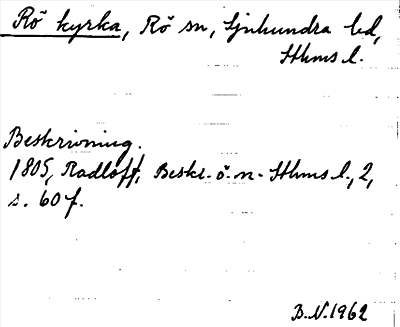 Rö kyrka, Rö sn, Sjuhundra hd,
Sthms l.
Beskrivning.
1805, Radloff, Beskr. ö. n. Sthms l., 2,
s. 60 f.
B.N. 1962